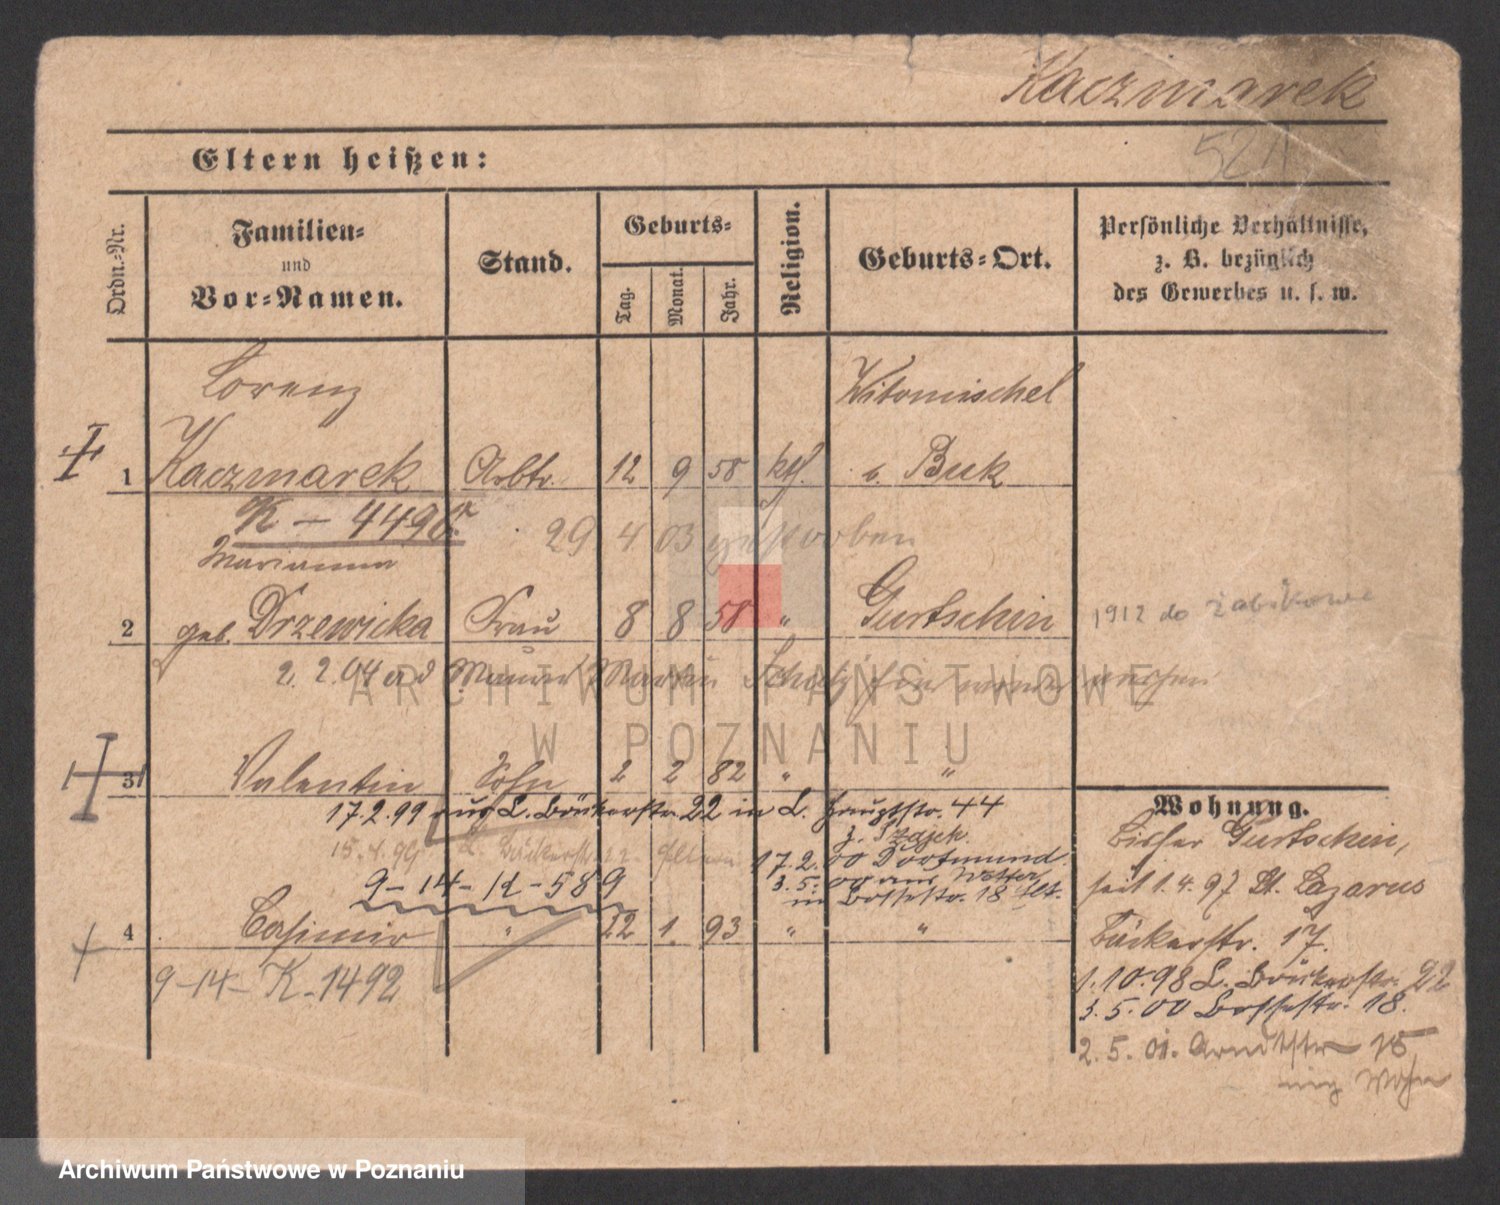 Kaczmarek
Eltern heißen:
Ordn.-Nr.
Familien- und Vor-Namen.
Stand.
Geburts-
Tag.
Monat.
Jahr.
Religion.
Geburts-Ort.
Persönliche Verhältnisse, z. B. bezüglich des Gewerbes u. s. w.
Lorenz Witomischel
1 Kaczmarek Arbtr. 12 9 58 kth. Buk
K - 4496
29 4 03 gestorben
Marianna
2 geb. Drzewicka Frau 8 8 58 " Gurtschin
1912 do Żabikowa
2. 2. 04
ARCHIWUM PAŃSTWOWE
W POZNANIU
3 Valentin Sohn 2 2 82 " "
17.2.99 aus L. Bäckerstr. 22 in L. Hauptstr. 44
15.4.99 L. Bäckerstr. 22 Eltern
17.2.00 Dortmund
3.5.00 aus
in Bossestr. 18
9-14-K-589
4 Casimir " 22 1. 93 " "
9-14-K-1492
Wohnung.
Bisher Gurtschin,
seit 1.4.97 St. Lazarus
Bäckerstr. 17.
1.10.98 L. Bäckerstr. 22
3.5.00 Bossestr. 18.
2.5.01. Arndtstr 15
Archiwum Państwowe w Poznaniu